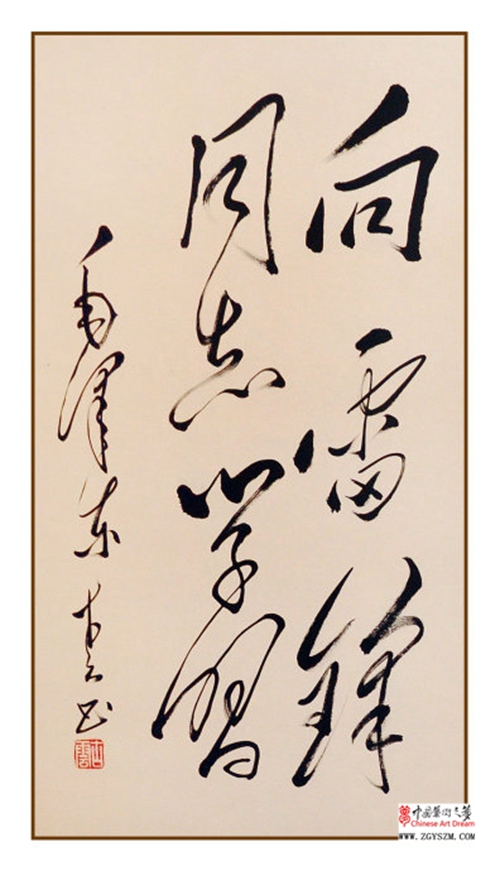 向雷鋒
同志学習
毛澤东
中國藝術之夢
Chinese Art Dream
www.ZGYSZM.COM